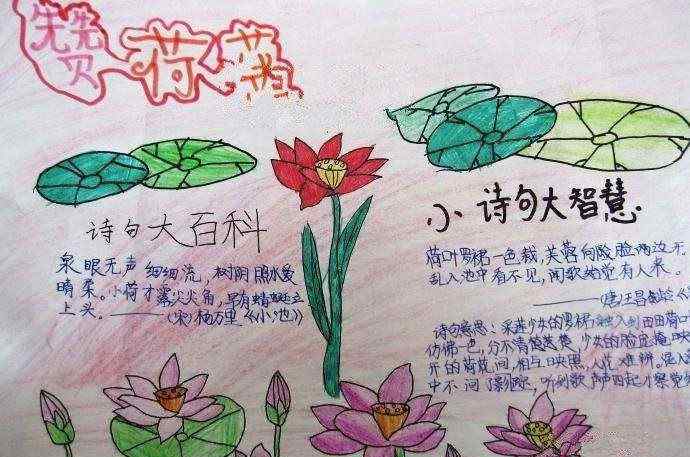 赞荷花
诗句大百科
泉眼无声细细流，树阴照水爱
晴柔。小荷才露尖尖角，早有蜻蜓立
上头。——（宋）杨万里《小池》
小诗句大智慧
荷叶罗裙一色裁，芙蓉向脸两边开
乱入池中看不见，闻歌始觉有人来。
——（唐）王昌龄
诗句意思：采莲少女的罗裙融入到田田荷叶
仿佛一色，分不清楚，少女的脸庞掩映
开的荷花间，相互映照，人花难辨。
中不间了踪影，听到歌声四起才察觉